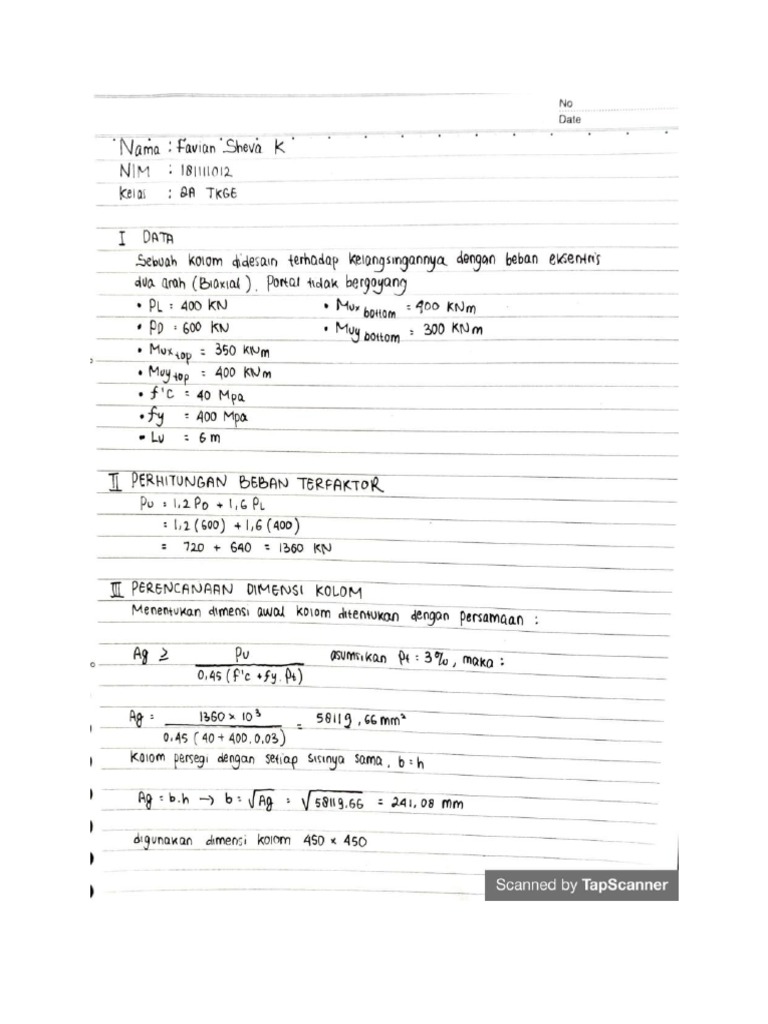 No
Date
Nama : Favian Sheva K
NIM : 181111012
Kelas : 2A TKGE
I DATA
Sebuah kolom didesain terhadap kelangsingannya dengan beban eksentris
dua arah (Biaxial). Portal tidak bergoyang
• PL = 400 KN • Mux bottom = 400 KNm
• PD = 600 KN • Muy bottom = 300 KNm
• Mux top = 350 KNm
• Muy top = 400 KNm
• f'c = 40 Mpa
• fy = 400 Mpa
• Lu = 6 m
II PERHITUNGAN BEBAN TERFAKTOR
Pu = 1,2 PD + 1,6 PL
= 1,2 (600) + 1,6 (400)
= 720 + 640 = 1360 KN
III PERENCANAAN DIMENSI KOLOM
Menentukan dimensi awal kolom ditentukan dengan persamaan :
Ag ≥ Pu / 0,45 (f'c + fy. Pt) asumsikan Pt = 3%, maka :
Ag = 1360 × 10³ / 0.45 (40 + 400.0,03) = 58119,66 mm²
Kolom persegi dengan setiap sisinya sama, b = h
Ag = b.h → b = √Ag = √58119.66 = 241,08 mm
digunakan dimensi kolom 450 × 450
Scanned by TapScanner